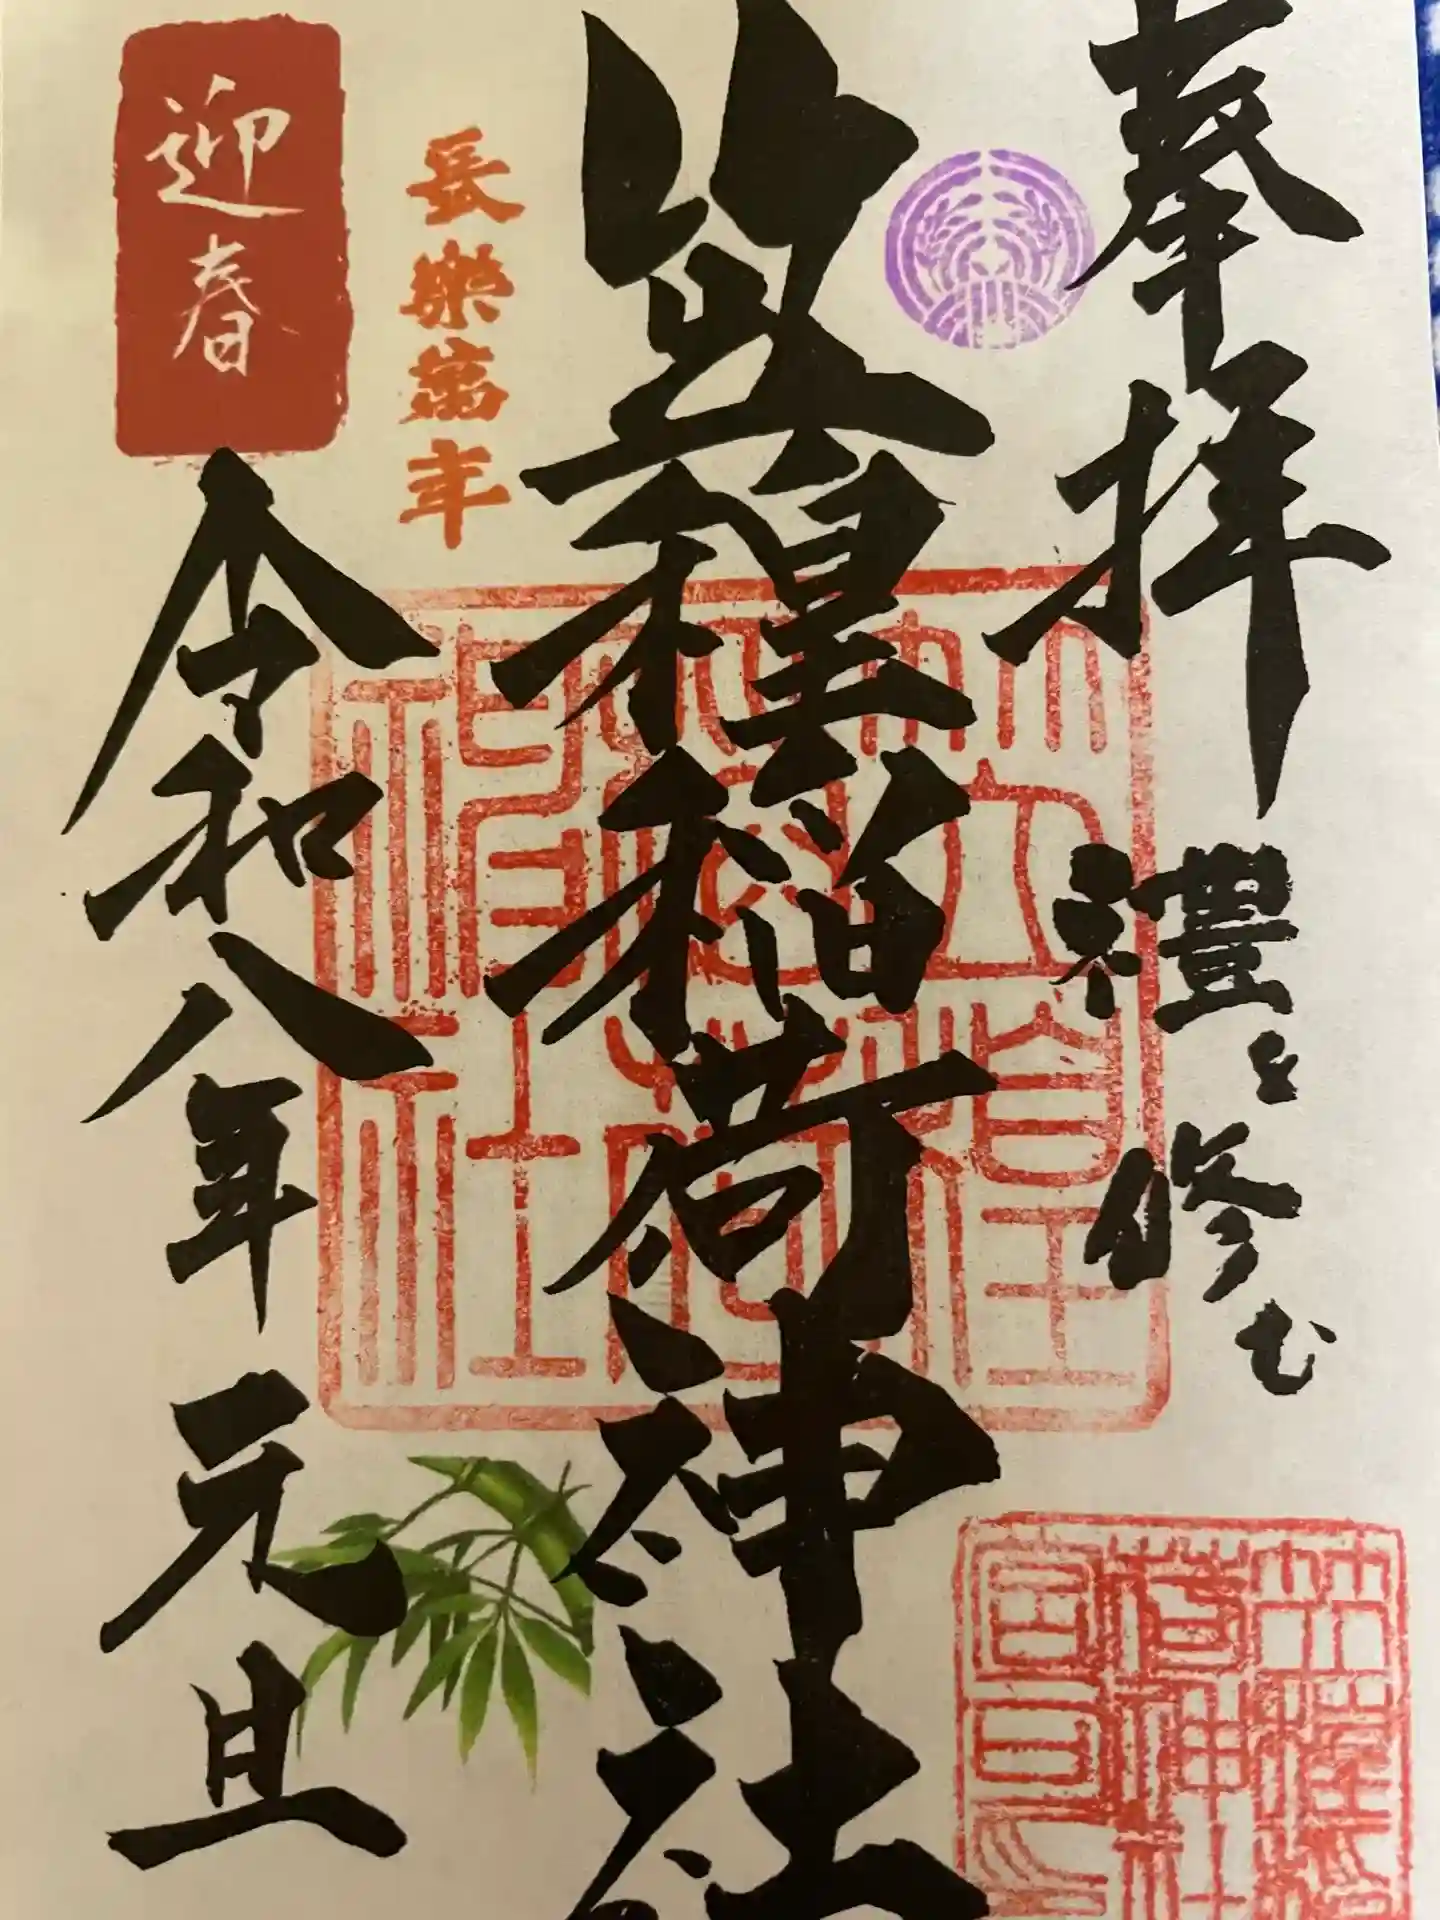 奉拝
禮を修む
笠䅣稲荷神社
長樂萬年
迎春
令和八年元旦
笠䅣
稲荷
神社
笠䅣稲
荷神社
宮司印